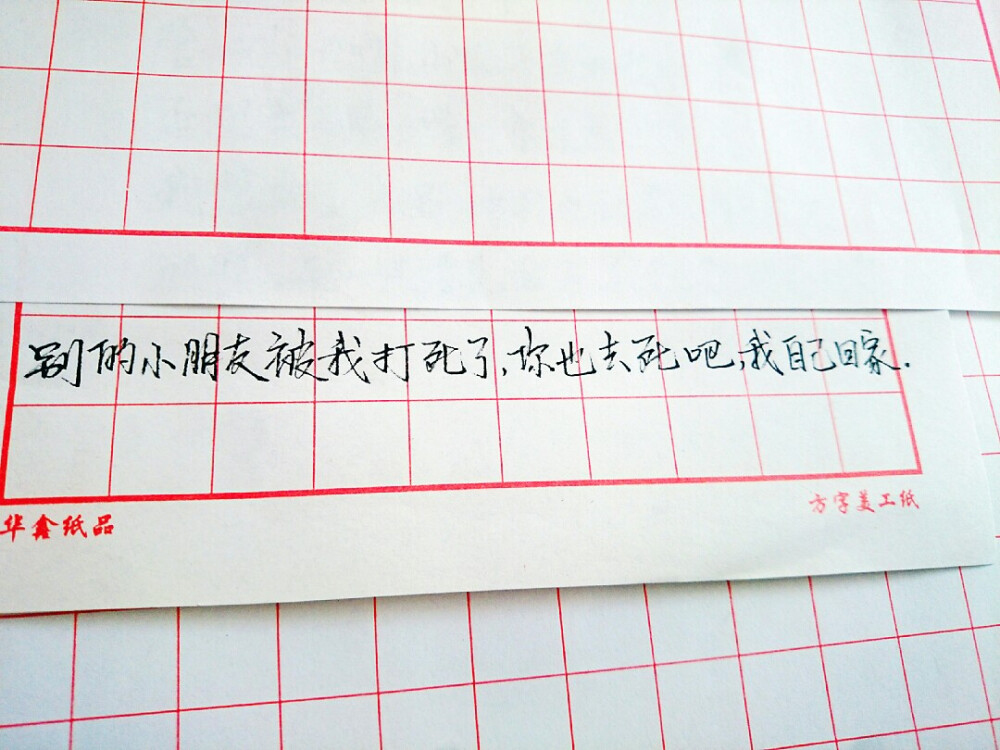 别的小朋友被我打死了,你也去死吧,我自己回家.
华鑫纸品 方字美工纸